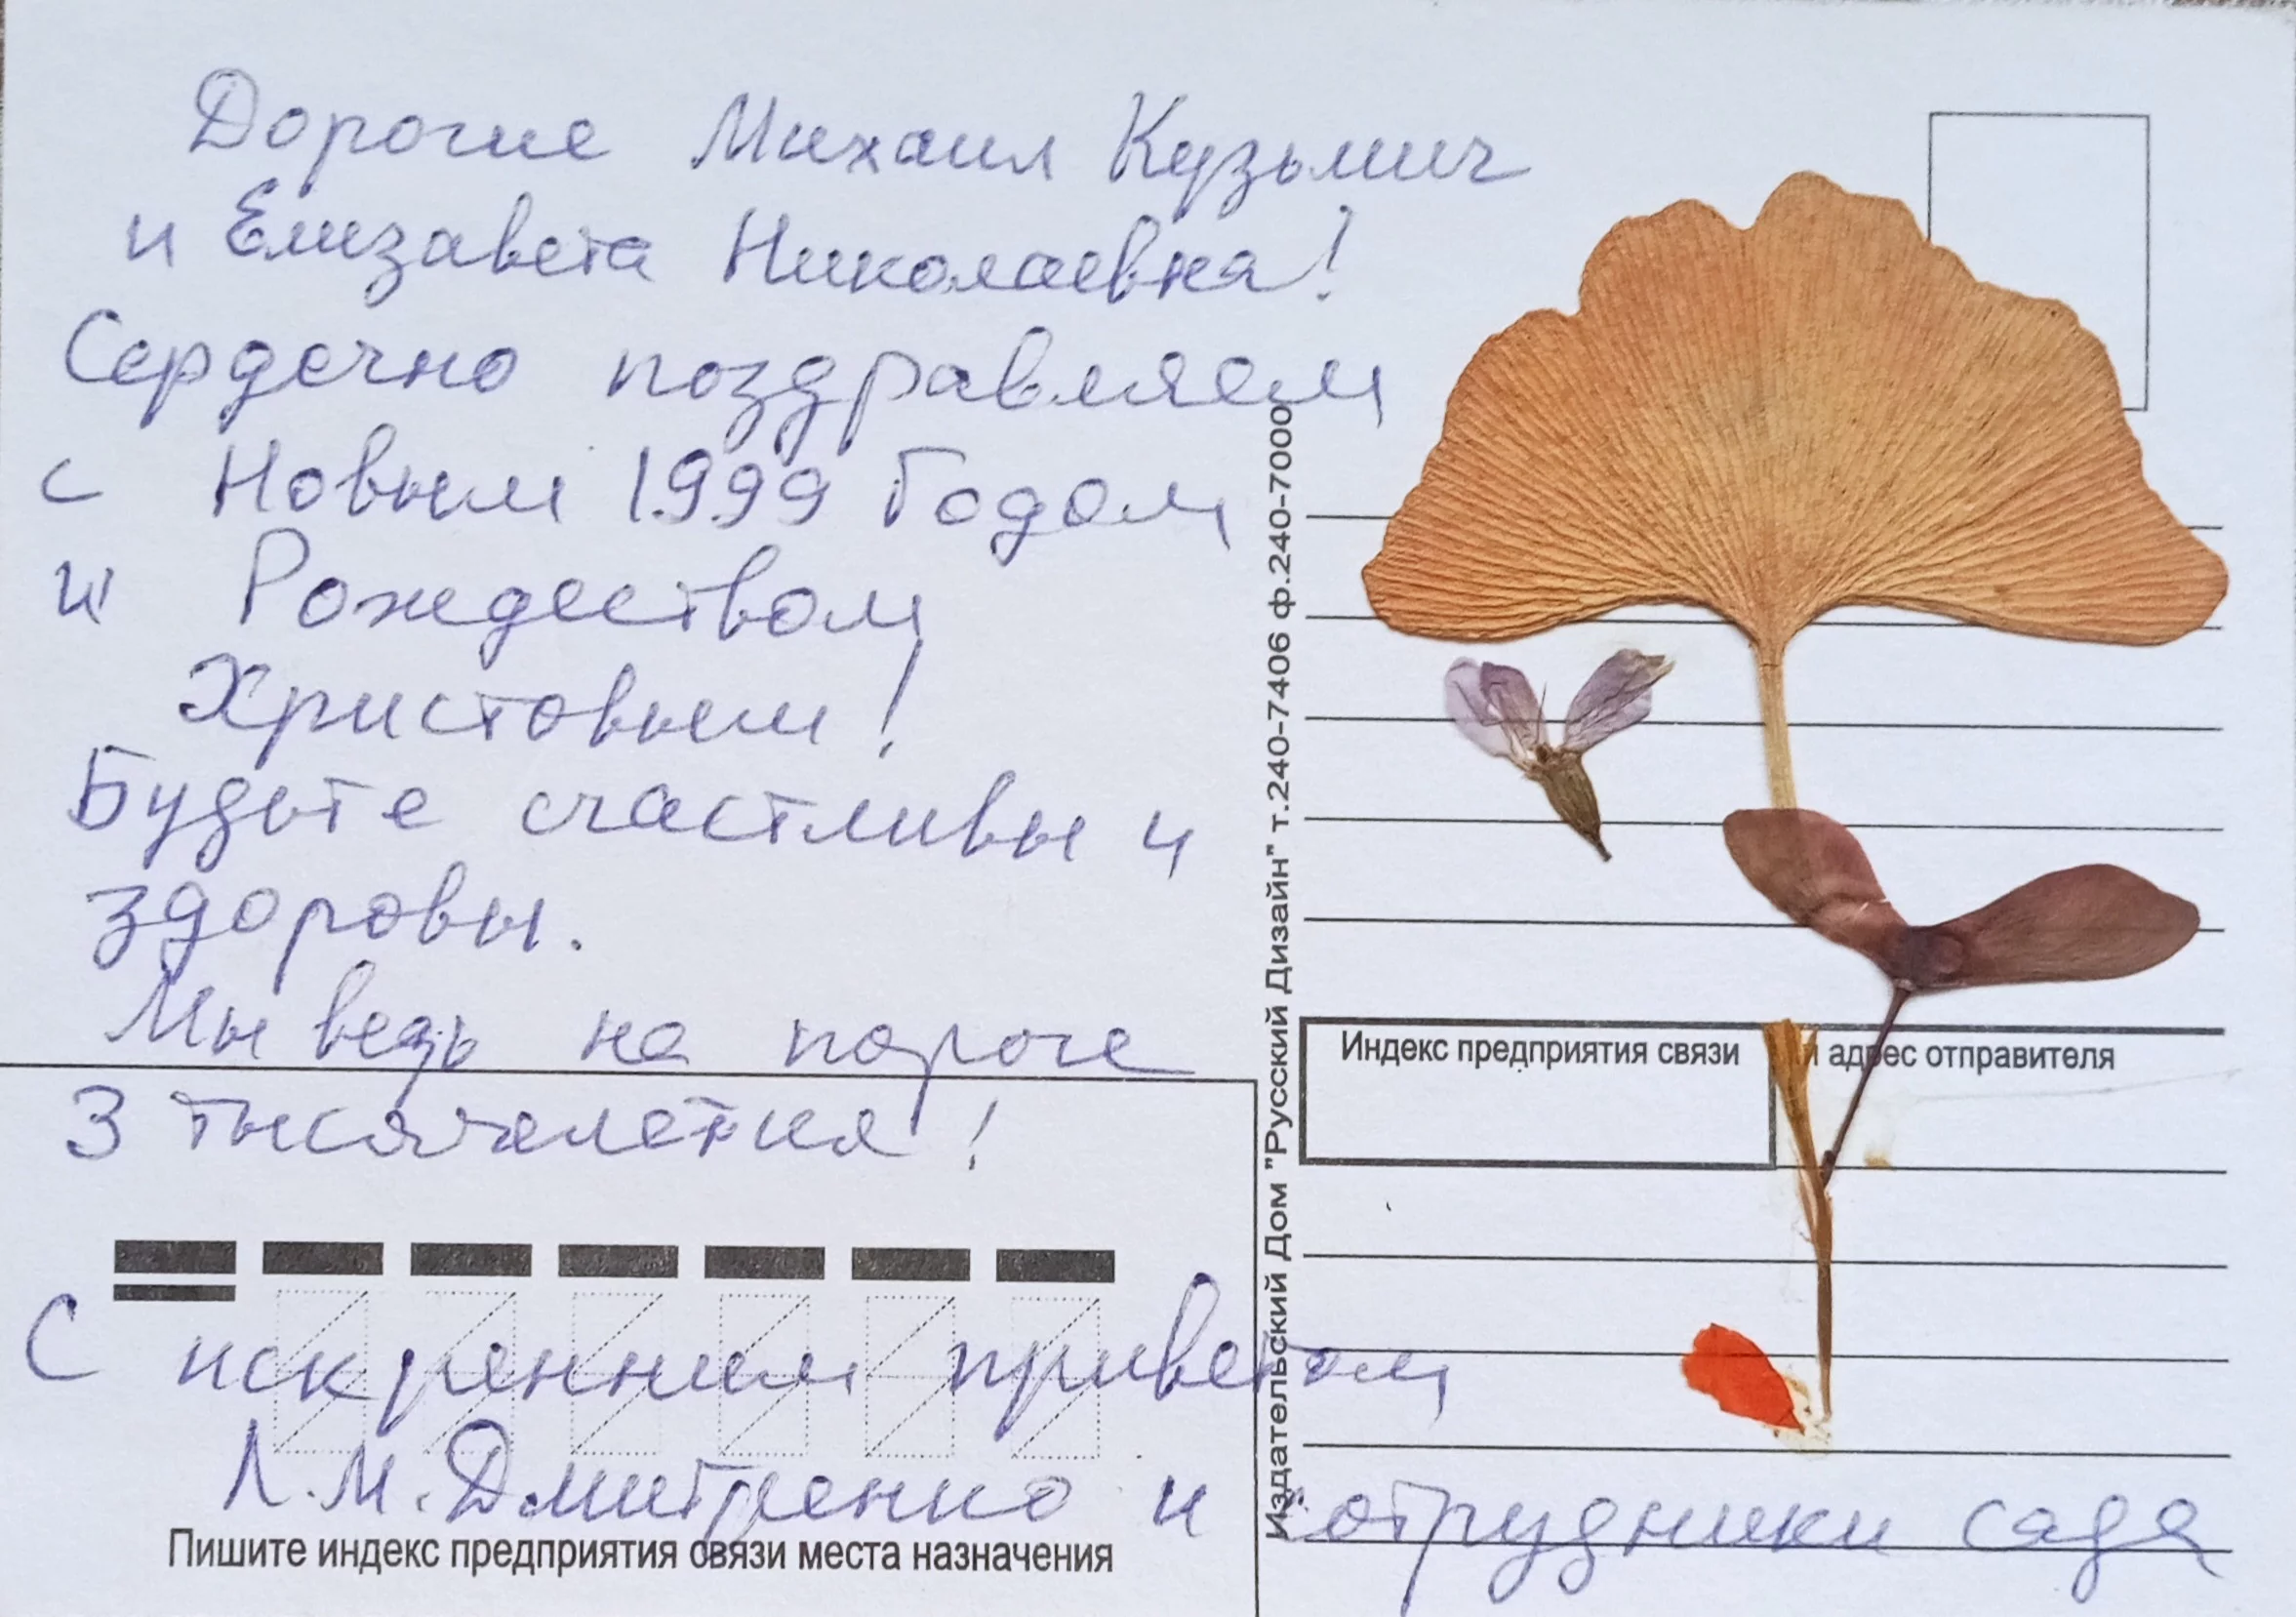 Дорогие Михаил Кузьмич
и Елизавета Николаевна!
Сердечно поздравляем
с Новым 1999 Годом
и Рождеством
Христовым!
Будьте счастливы и
здоровы.
Мы ведь на пороге
3 тысячелетия!
С искренним приветом
Л.М. Дмитренко и сотрудники сада
Пишите индекс предприятия связи места назначения
Издательский Дом "Русский Дизайн" т.240-7406 ф.240-7000
Индекс предприятия связи и адрес отправителя